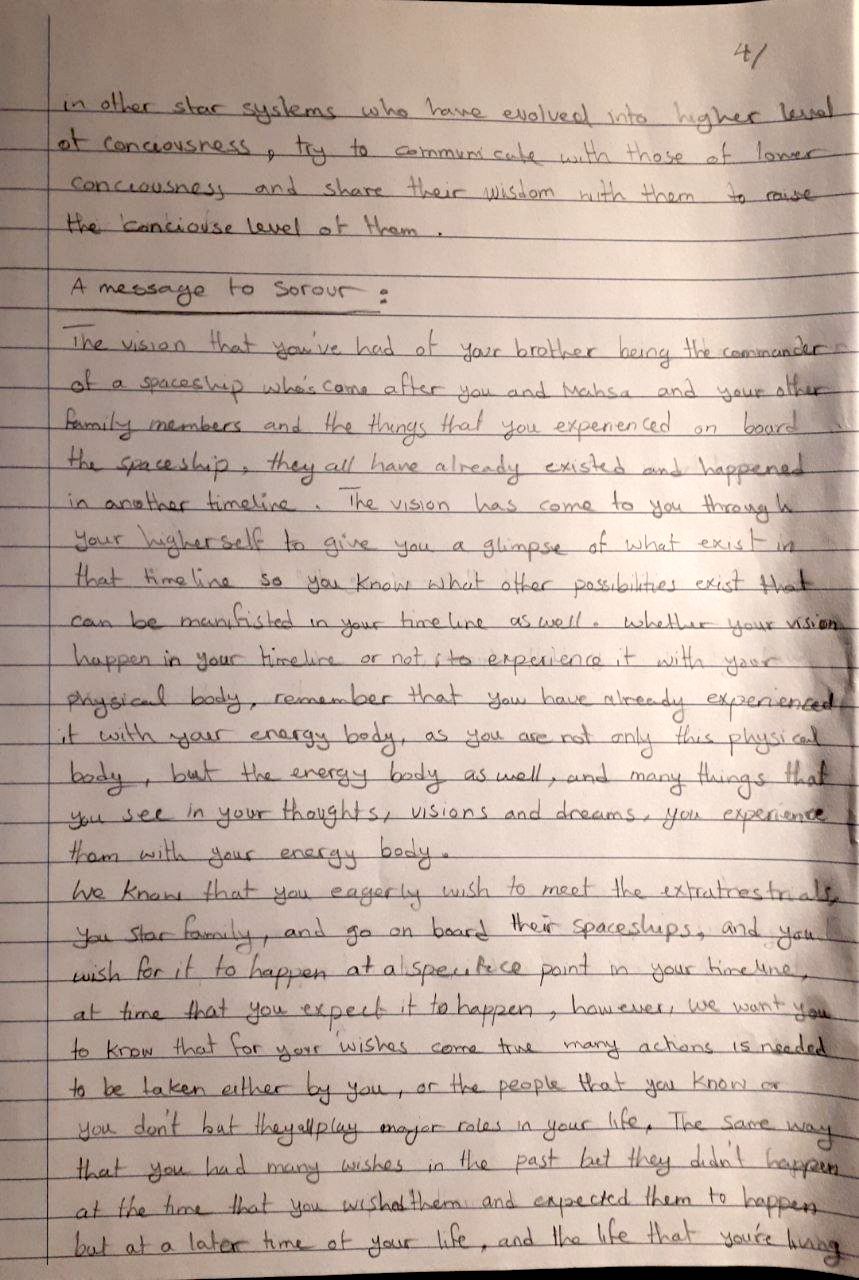 4/
in other star systems who have evolved into higher level
of conciousness, try to communicate with those of lower
conciousness and share their wisdom with them to raise
the conciouse level of them.
A message to Sorour :
The vision that you've had of your brother being the commander
of a spaceship who's come after you and Mahsa and your other
family members and the things that you experienced on board
the spaceship, they all have already existed and happened
in another timeline. The vision has come to you through
your higherself to give you a glimpse of what exist in
that timeline so you know what other possibilities exist that
can be manifisted in your timeline as well. whether your vision
happen in your timeline or not to experience it with your
physical body, remember that you have already experienced
it with your energy body, as you are not only this physical
body, but the energy body as well, and many things that
you see in your thoughts, visions and dreams, you experience
them with your energy body.
We know that you eagerly wish to meet the extratrestrials,
you star family, and go on board their spaceships, and you
wish for it to happen at a point in your timeline,
at time that you expect it to happen, however, we want you
to know that for your wishes come true many actions is needed
to be taken either by you, or the people that you know or
you don't but they all play major roles in your life. The same way
that you had many wishes in the past but they didn't happen
at the time that you wished them and expected them to happen
but at a later time of your life, and the life that you're living